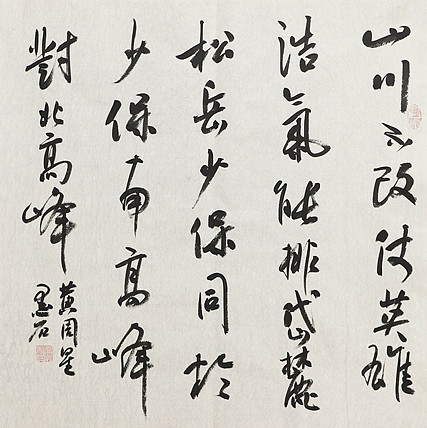 山川不改仗英雄
浩氣能排岱麓
松岳少保同於
少保南高峰
對北高峰
黄周星
墨石